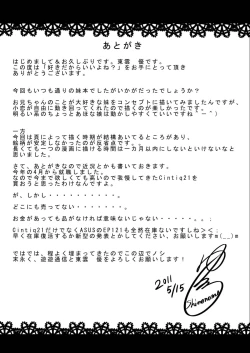 あとがき
はじめまして＆お久しぶりです。東雲　優です。
この度は「好きだからいいよね？」をお手にとって頂き
ありがとうございます。
今回もいつも通りの妹本でしたがいかがだったでしょうか？
お兄ちゃんのことが大好きな妹をコンセプトに描いてみましたんですが、
小恋が自由に動き回ってくれたので描くのが楽しかったです。
明るい系のちょっとあほな妹とかもなかなか動かしやすいですね＾－＾）
一方
今回は頁によって描く時期が結構あいてるところがあり、
絵柄が安定しなかったのが反省点です。
長くても一つの漫画に描ける時間は一カ月以内にしないといけないなと
思いました。
さて、あとがきなので近況とかも書いておきます。
今年の4月から就職しました。
なので今まで欲しくても高いので我慢してきたCintiq21を
買おうと思ったわけなんです。
が、しかし・・・・・・・・・・・。
どこにも売ってない・・・・・・・。
お金があっても品がなければ意味ないじゃない・・・・。。：
Cintiq21だけでなくASUSのEP121も全然在庫ないですしね＞＜；
早く在庫復活するか新型の発表とかしてください、お願いします m(__)m
ではでは、程よく埋まってきたのでこの辺でノシ
末永く、遊遊通信と東雲　優をよろしくお願いします！
2011
5/15
Shinonome